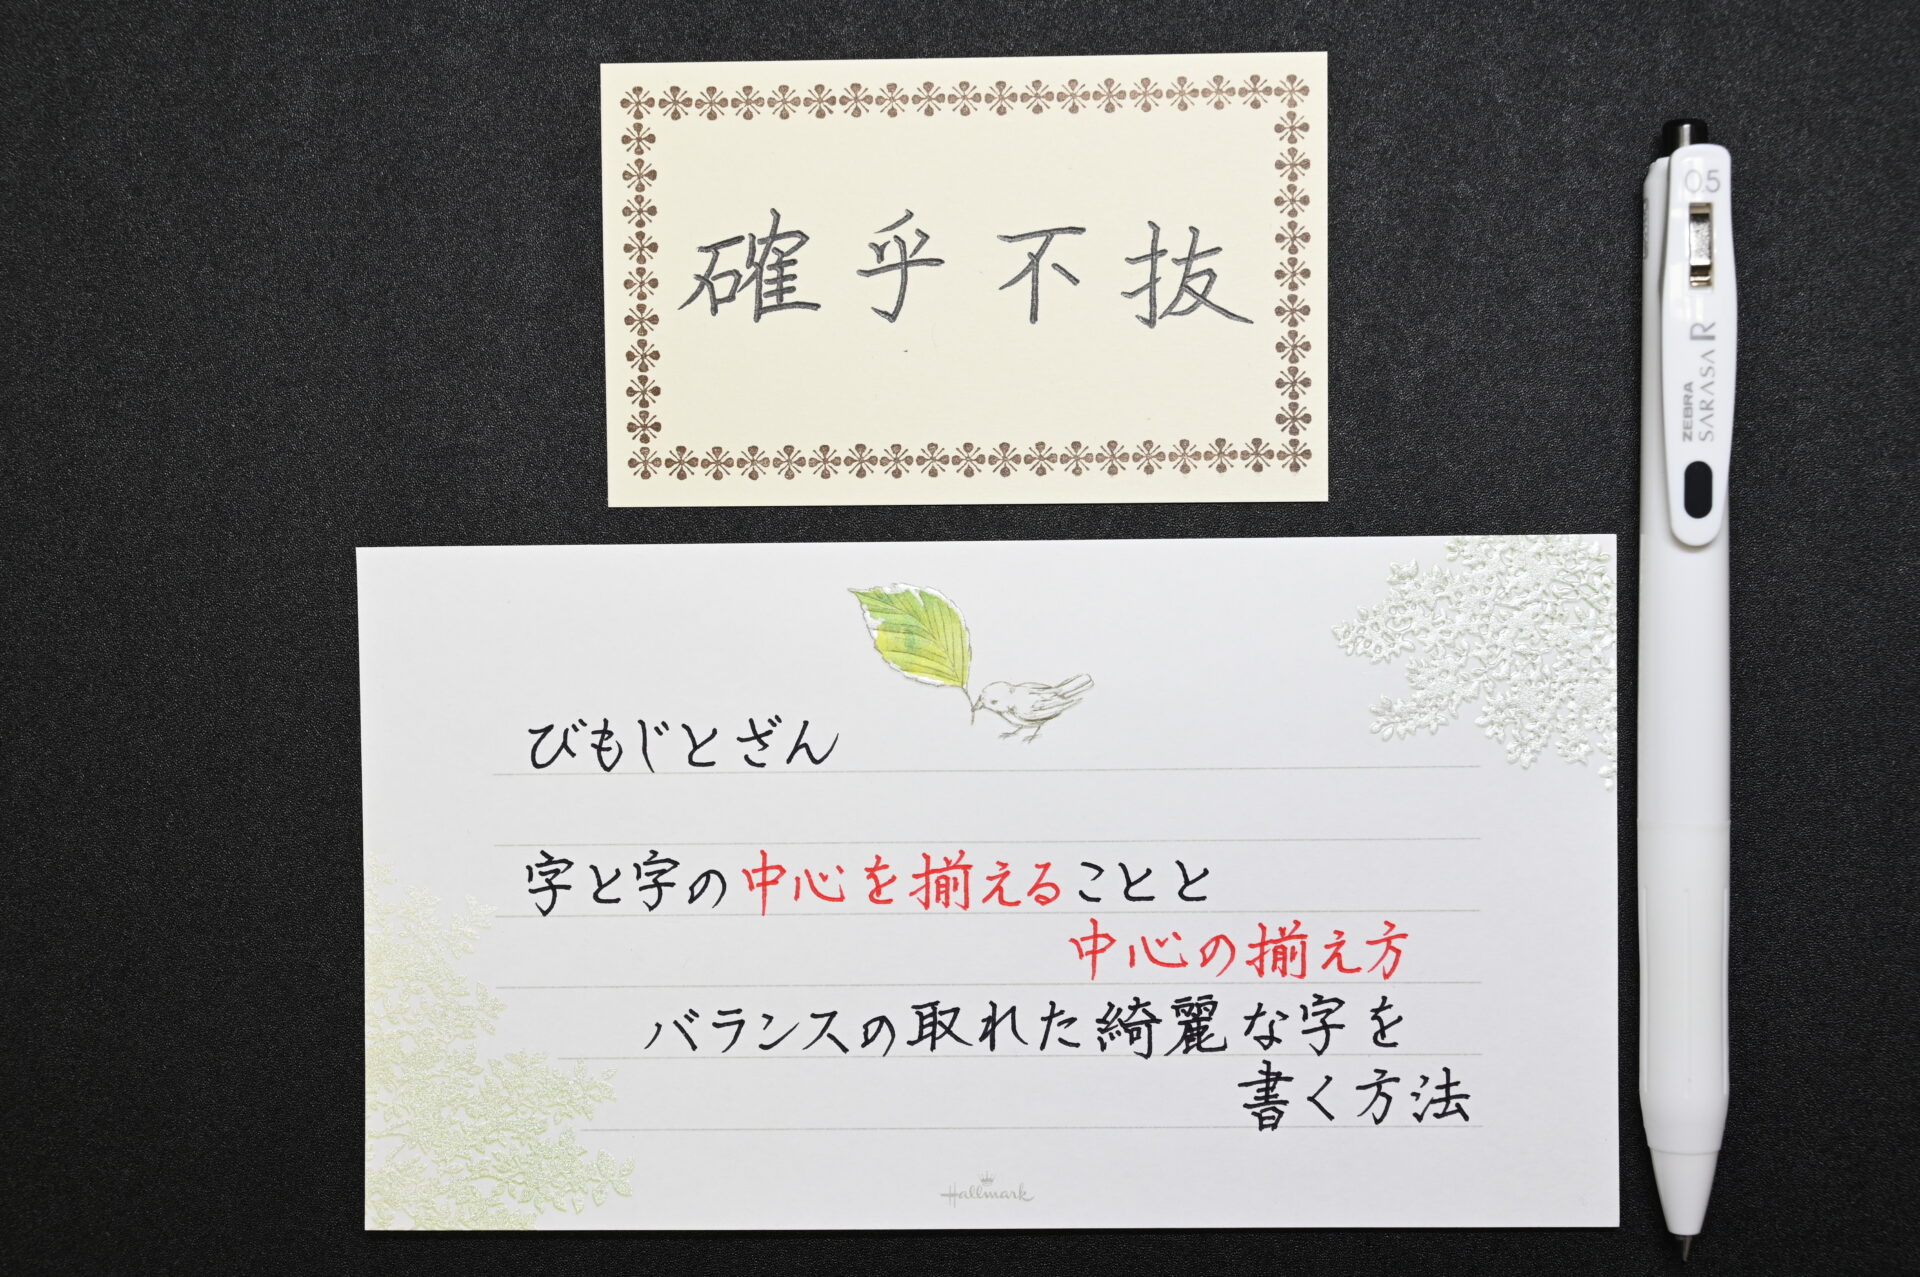 確乎不抜
びもじとざん
字と字の中心を揃えることと
中心の揃え方
バランスの取れた綺麗な字を
書く方法
Hallmark
0.5
ZEBRA
SARASA R